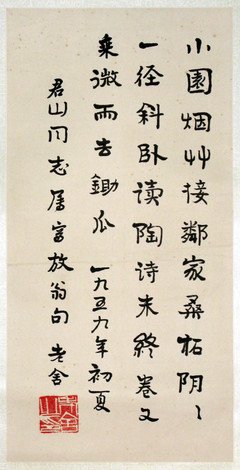 小園烟艸接鄰家桑柘阴〻
一径斜卧读陶诗未終卷又
乘微雨去鋤瓜 一九五九年初夏
君山同志属写放翁句 老舍